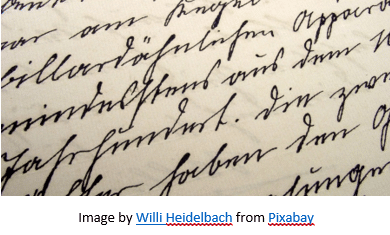 war am Kegel
billardähnlichen Appara
mindestens aus dem
Jahrhundert. Die zwe
haben den
Image by Willi Heidelbach from Pixabay